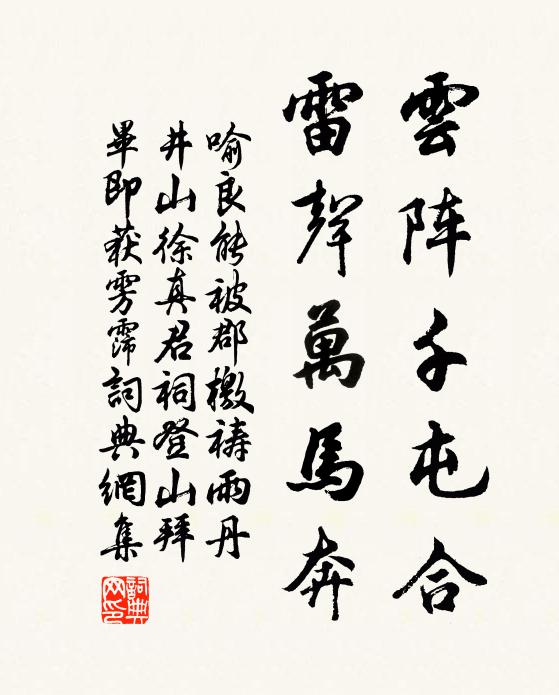 雲阵千屯合
雷聲萬馬奔
喻良能被郡檄禱雨丹
井山徐真君祠登山拜
畢即获雱霈詞典網集
詞典網印